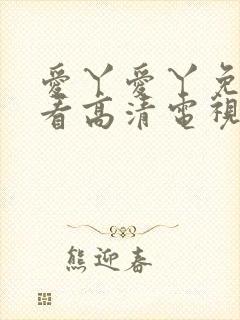 愛丫愛丫免
看高清電視
熊迎春